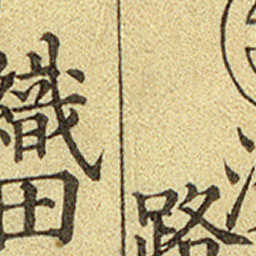 路
織田